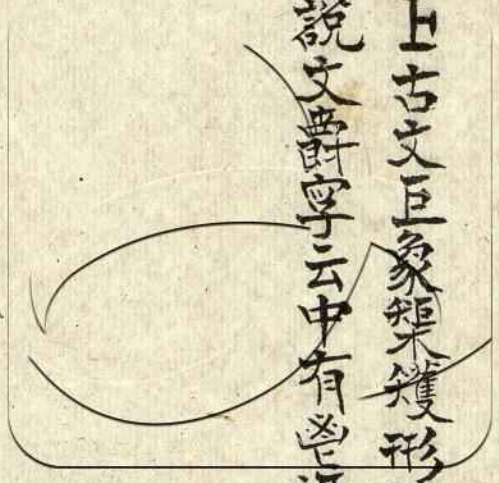 上古文巨象榘矱形
說文爵字云中有鬯酒